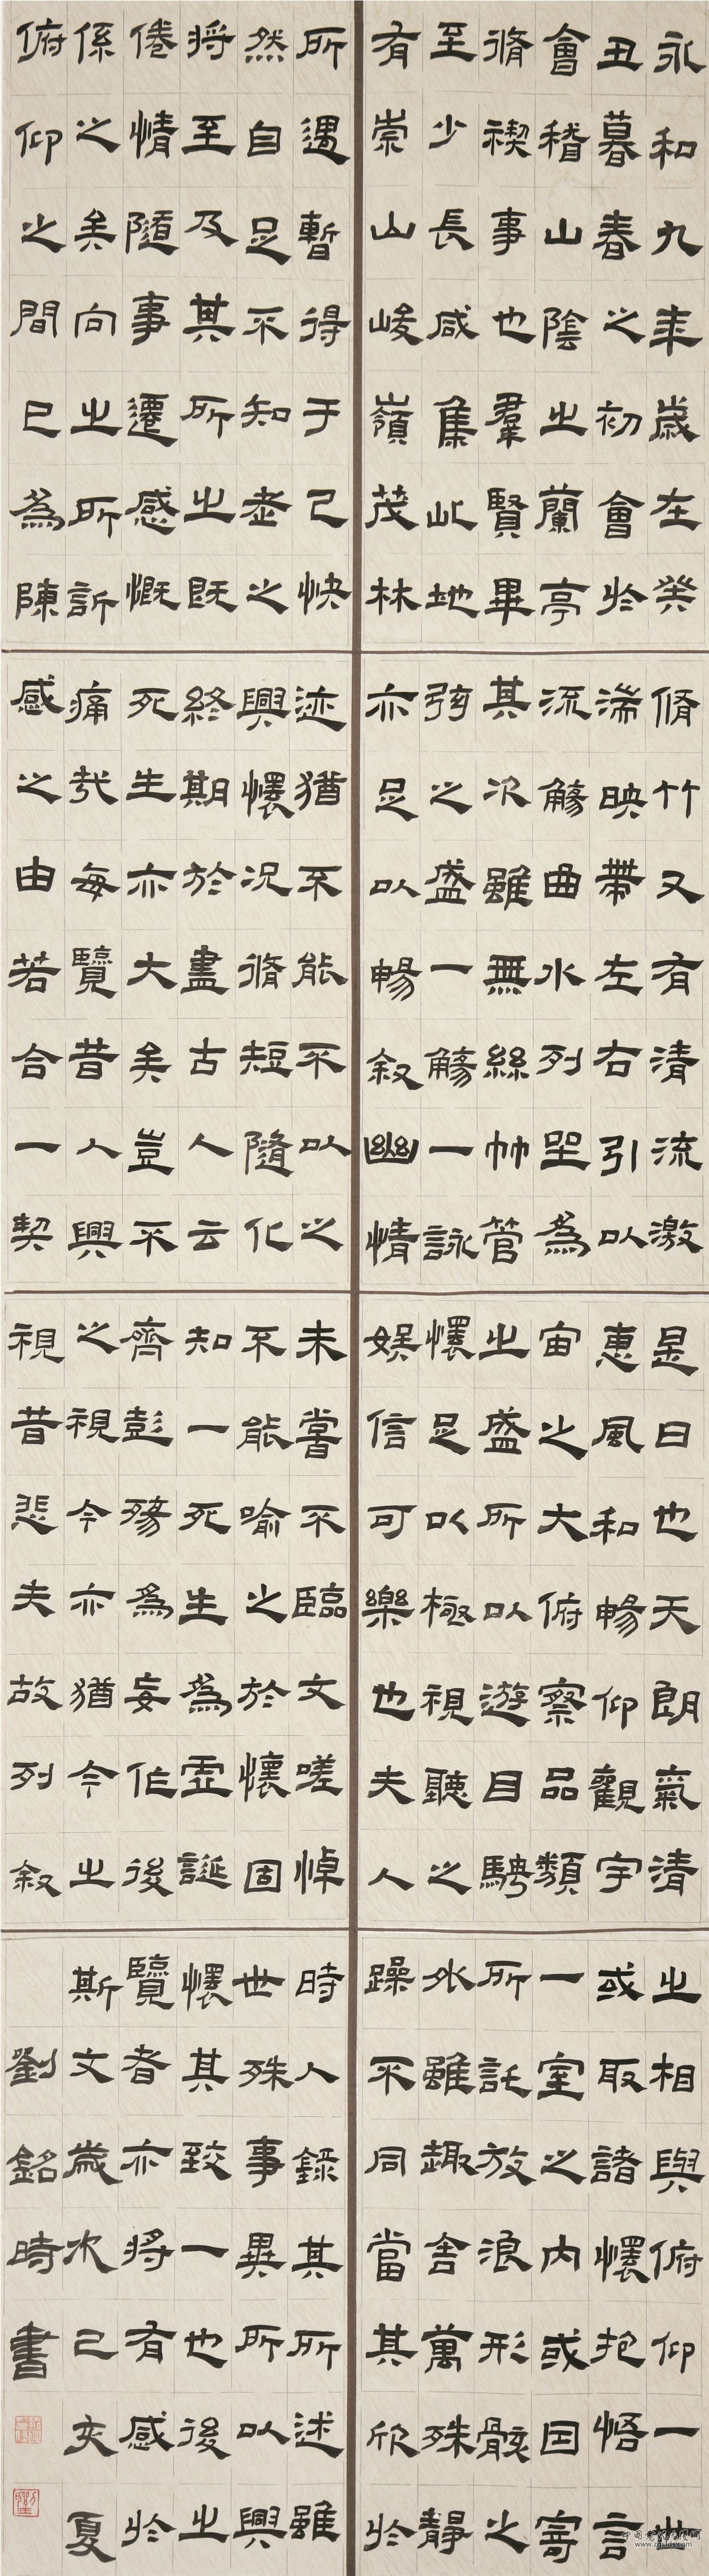 永和九年歲在癸
丑暮春之初會於
會稽山陰之蘭亭
脩禊事也羣賢畢
至少長咸集此地
有崇山峻嶺茂林
脩竹又有清流激
湍映帶左右引以
流觴曲水列坐為
其次雖無絲竹管
弦之盛一觴一詠
亦足以暢敘幽情
是日也天朗氣清
惠風和暢仰觀宇
宙之大俯察品類
之盛所以遊目騁
懷足以極視聽之
娛信可樂也夫人
之相與俯仰一世
或取諸懷抱悟言
一室之內或因寄
所託放浪形骸之
外雖趣舍萬殊靜
躁不同當其欣於
所遇暫得于己快
然自足不知老之
將至及其所之既
倦情隨事遷感慨
係之矣向之所訢
俯仰之間已為陳
迹猶不能不以之
興懷況脩短隨化
終期於盡古人云
死生亦大矣豈不
痛哉每覽昔人興
感之由若合一契
未嘗不臨文嗟悼
不能喻之於懷固
知一死生為虛誕
齊彭殤為妄作後
之視今亦猶今之
視昔悲夫故列敘
時人錄其所述雖
世殊事異所以興
懷其致一也後之
覽者亦將有感於
斯文歲次己亥夏
劉銘時書